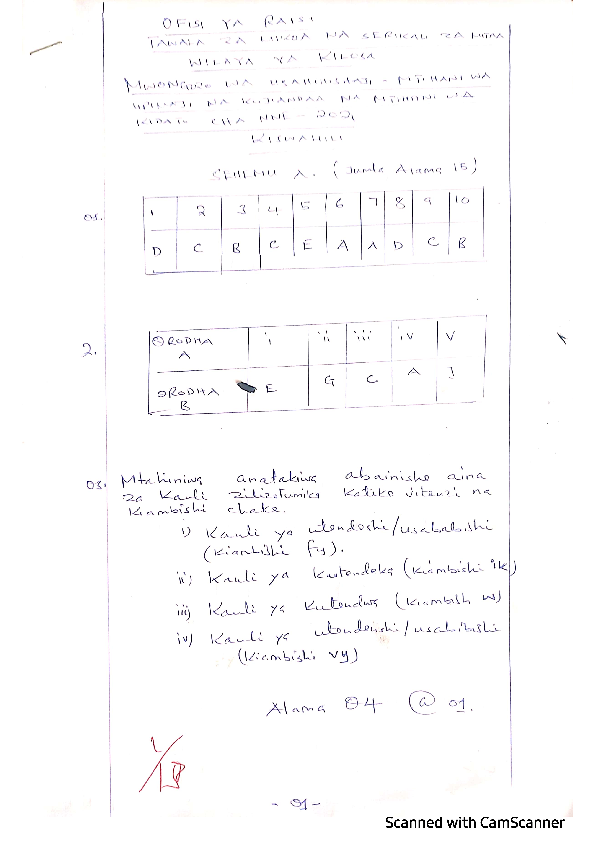 OFISI YA RAISI
TAWALA ZA MIKOA NA SERIKALI ZA MITAA
WILAYA YA KILOSA
MWONGOZO WA USAHIHISHAJI - MTIHANI WA
NA KUJIANDAA NA MTIHANI WA
KIDATO CHA NNE - 2021
KISWAHILI
SEHEMU A. (Jumla Alama 15)
01.
1 2 3 4 5 6 7 8 9 10
D C B C E A A D C B
2.
ORODHA A i ii iii iv v
ORODHA B E G C A J
03. Mtahiniwa anatakiwa abainishe aina
za Kauli zilizotumika katika vitenzi na
kiambishi chake.
i) Kauli ya utendeshi/usababishi
(kiambishi fy).
ii) Kauli ya kutendeka (kiambishi ik)
iii) Kauli ya kutendwa (kiambish w)
iv) Kauli ya utendeshi/usababishi
(kiambishi vy)
Alama 04 @ 01.
- 01 -
Scanned with CamScanner